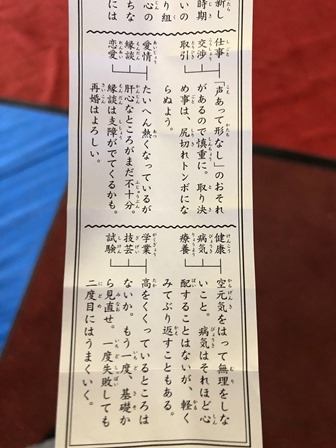 新し
時期
いの
り組
心の
ちな
には
仕事
交渉
取引
「声あって形なし」のおそれ
があるので慎重に。取り決
め事は、尻切れトンボにな
らぬよう。
愛情
縁談
恋愛
たいへん熱くなっているが
肝心なところがまだ不十分。
縁談は支障がでてくるかも。
再婚はよろしい。
健康
病気
療養
空元気をはって無理をしな
いこと。病気はそれほど心
配することはないが、軽く
みてぶり返すこともある。
学業
技芸
試験
高をくくっているところは
ないか。もう一度、基礎か
ら見直せ。一度失敗しても
二度目にはうまくいく。